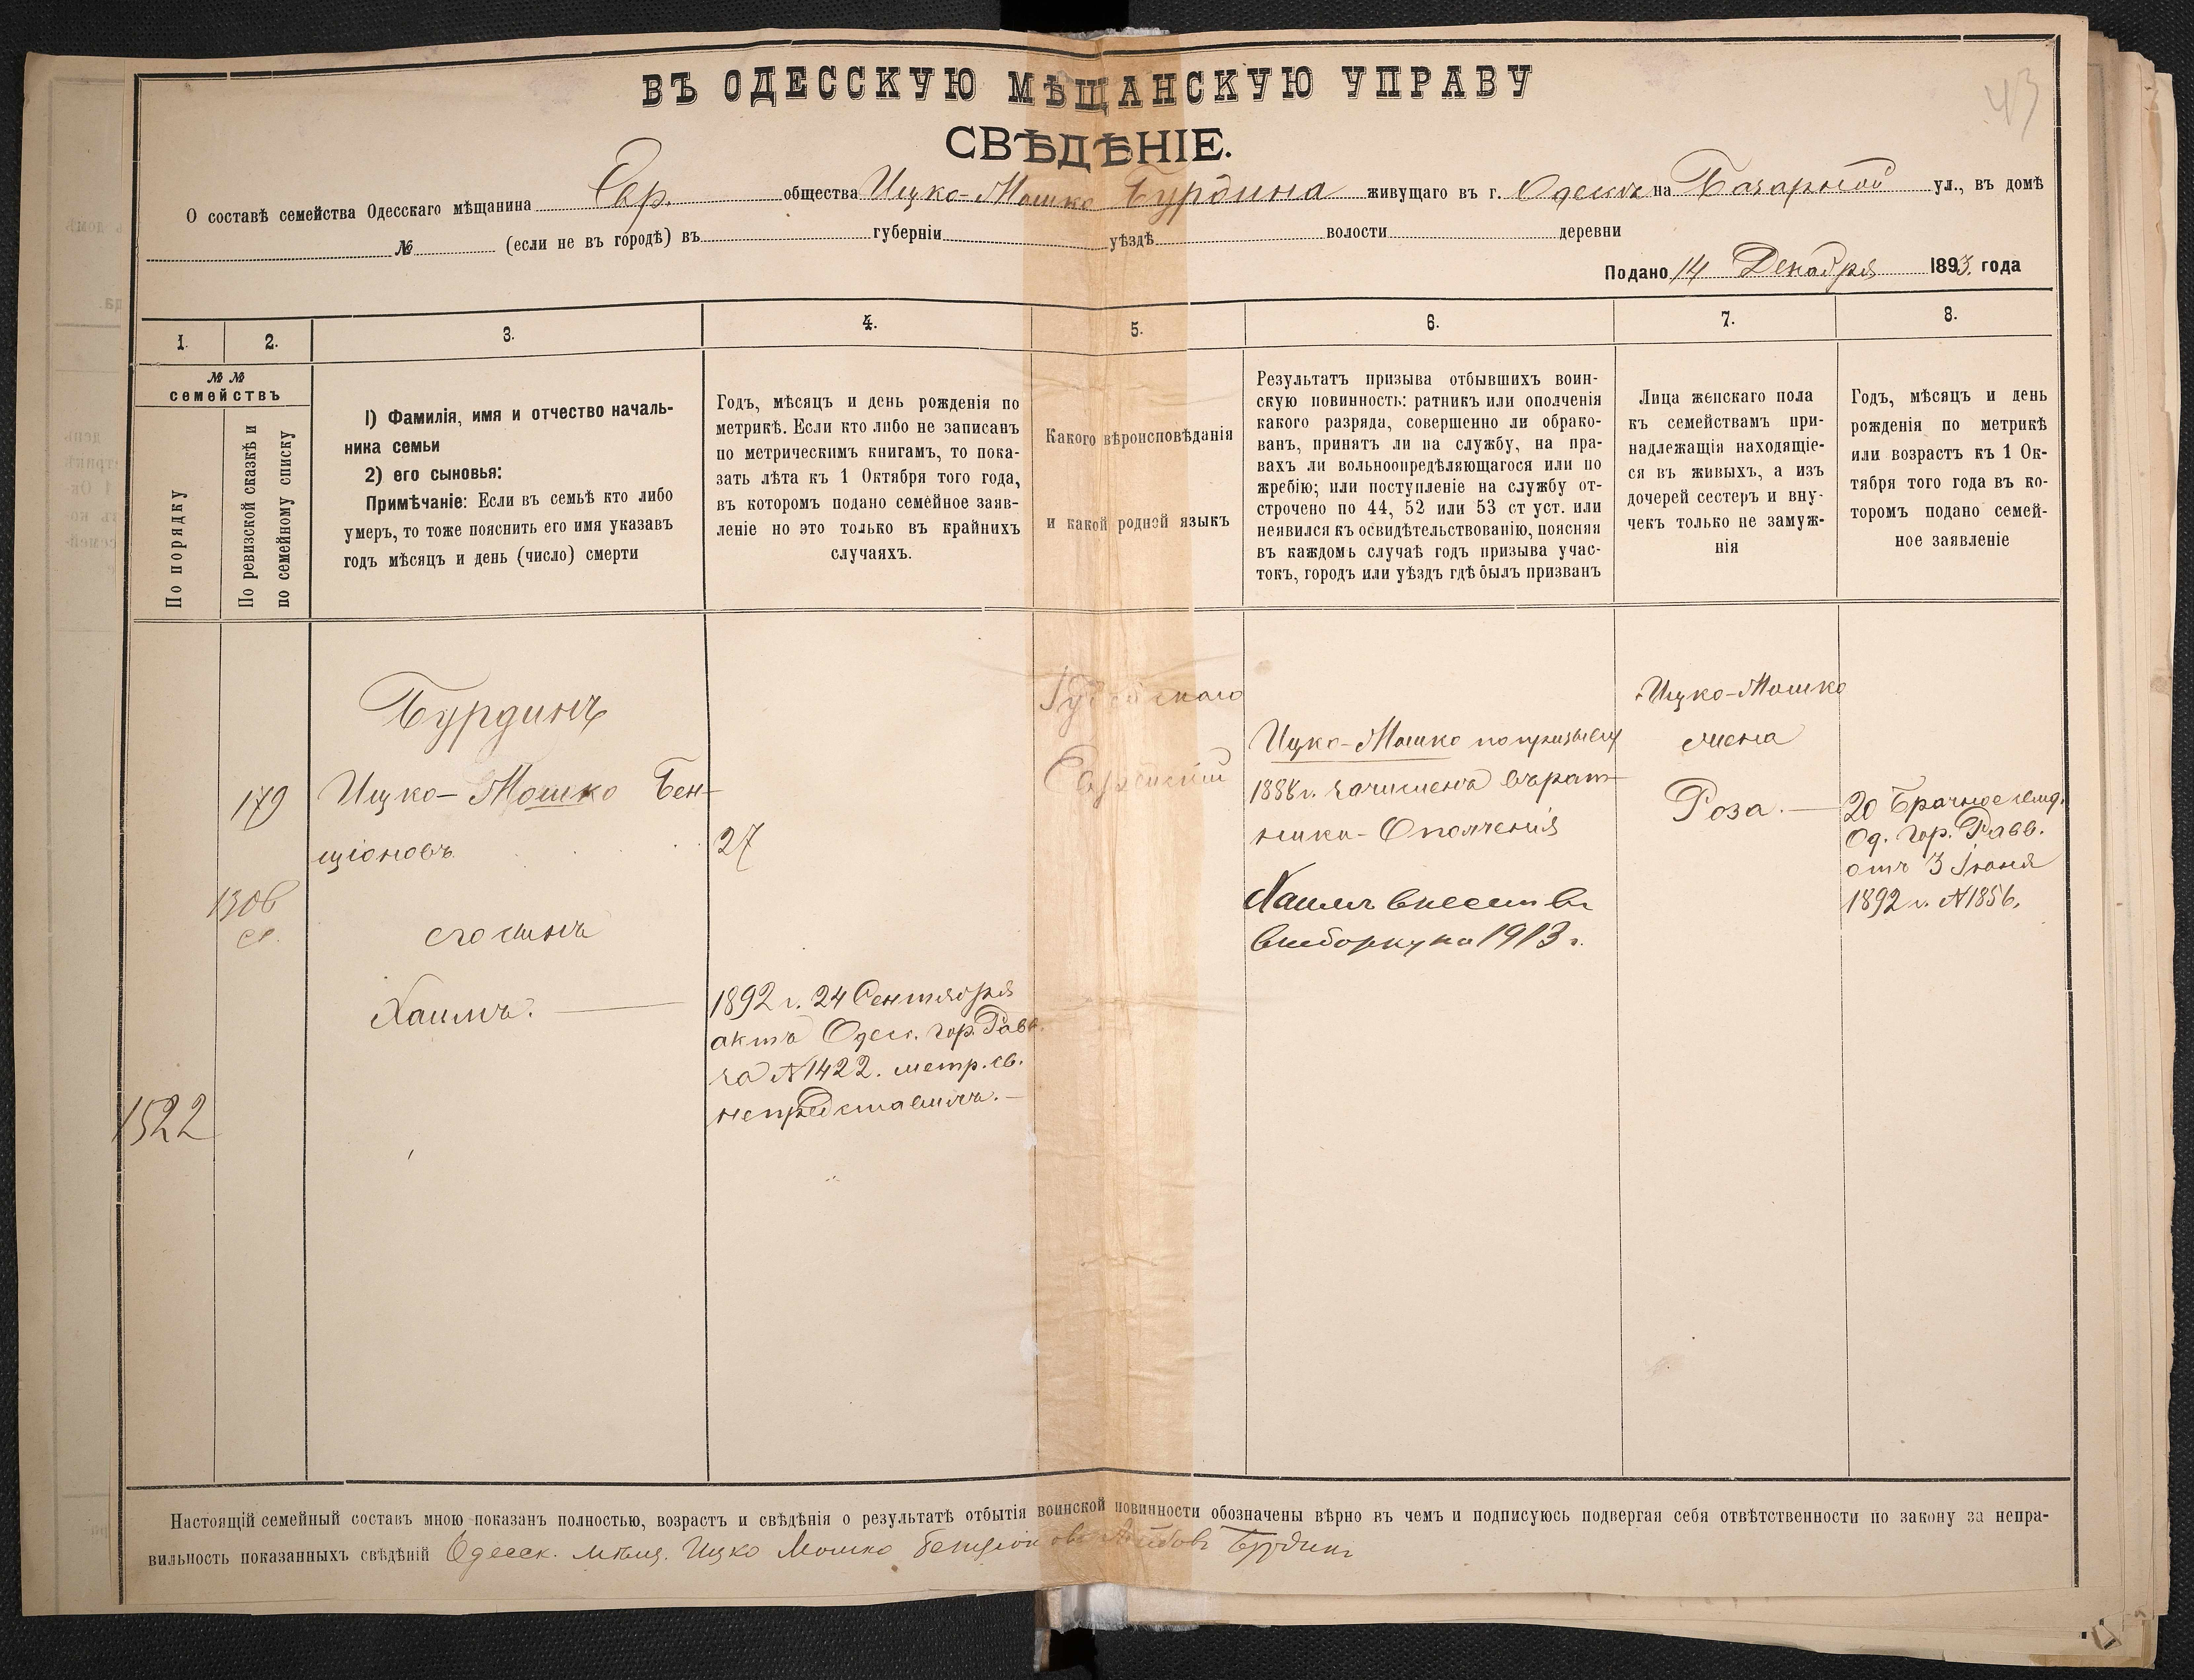 43
ВЪ ОДЕССКУЮ МѢЩАНСКУЮ УПРАВУ
СВѢДѢНІЕ.
О составѣ семейства Одесскаго мѣщанина Евр. общества Ицко-Мошко Бурдина живущаго въ г. Одессѣ на Базарной ул., въ домѣ
№ (если не въ городѣ) въ губерніи уѣздѣ волости деревни
Подано 14 Декабря 1893. года
1. 2. 3. 4. 5. 6. 7. 8.
№ №
семействъ
По порядку
По ревизской сказкѣ и
по семейному списку
1) Фамилія, имя и отчество началь-
ника семьи
2) его сыновья:
Примѣчаніе: Если въ семьѣ кто либо
умеръ, то тоже пояснить его имя указавъ
годъ мѣсяцъ и день (число) смерти
Годъ, мѣсяцъ и день рожденія по
метрикѣ. Если кто либо не записанъ
по метрическимъ книгамъ, то пока-
зать лѣта къ 1 Октября того года,
въ которомъ подано семейное заяв-
леніе но это только въ крайнихъ
случаяхъ.
Какого вѣроисповѣданія
и какой родной языкъ
Результатъ призыва отбывшихъ воин-
скую повинность: ратникъ или ополченія
какого разряда, совершенно ли обрако-
ванъ, принятъ ли на службу, на пра-
вахъ ли вольноопредѣляющагося или по
жребію; или поступленіе на службу от-
строчено по 44, 52 или 53 ст уст. или
неявился къ освидѣтельствованію, поясняя
въ каждомъ случаѣ годъ призыва учас-
токъ, городъ или уѣздъ гдѣ былъ призванъ
Лица женскаго пола
къ семействамъ при-
надлежащія находящіе-
ся въ живыхъ, а изъ
дочерей сестеръ и вну-
чекъ только не замуж-
нія
Годъ, мѣсяцъ и день
рожденія по метрикѣ
или возрастъ къ 1 Ок-
тября того года въ ко-
торомъ подано семей-
ное заявленіе
1522
179
1306
Бурдинъ
Ицко-Мошко Бен-
ціоновъ
его сынъ
Хаимъ.
27
1892 г. 24 Сентября
актъ Одес. гор. Равв.
за №1422. метр. св.
непредставилъ.
Іудейскаго
Еврейскій
Ицко-Мошко по призыву
1888 г. зачисленъ въ рат-
ники-Ополченія
Хаимъ внесенъ въ
выборку на 1913 г.
Ицко-Мошко
жена
Роза.
20 Брачное свид.
Од. гор. Равв.
отъ 3 Іюня
1892 г. №1856.
Настоящій семейный составъ мною показанъ полностью, возрастъ и свѣдѣнія о результатѣ отбытія воинской повинности обозначены вѣрно въ чемъ и подписуюсь подвергая себя отвѣтственности по закону за непра-
вильность показанныхъ свѣдѣній Одесск. мѣщ. Ицко Мошко Бенціоновъ Бурдинъ